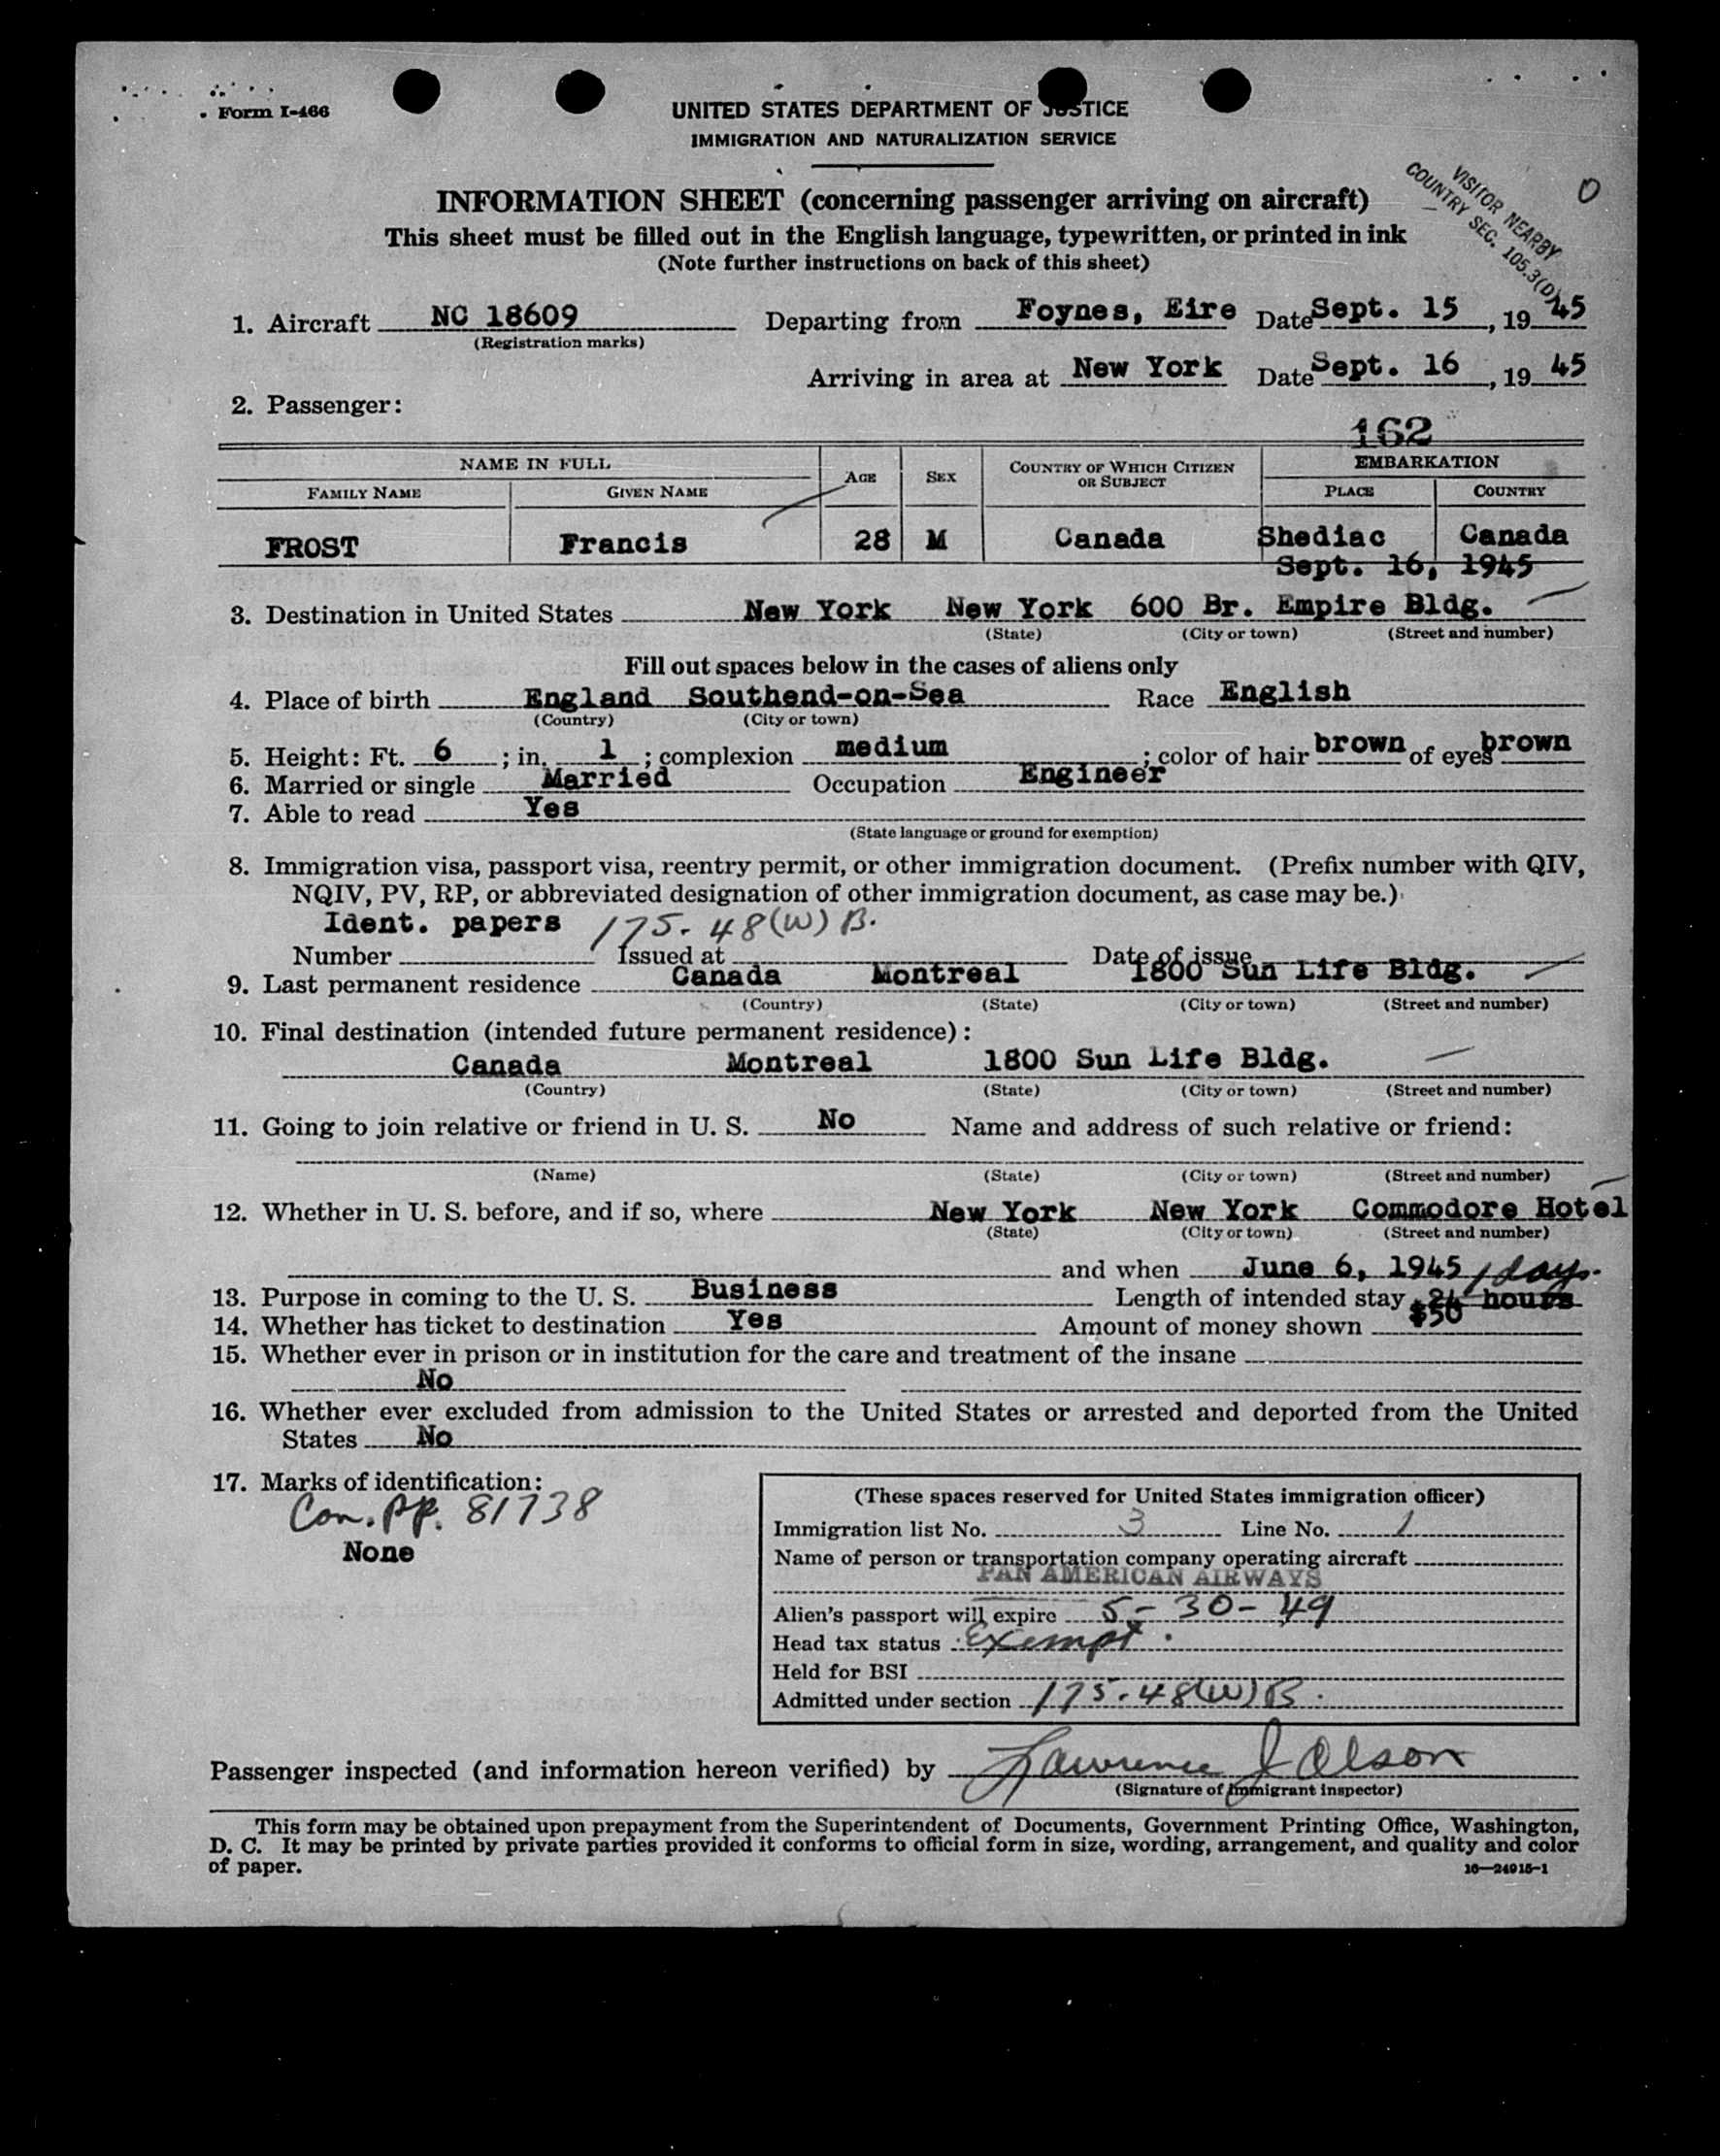 Form I-466
UNITED STATES DEPARTMENT OF JUSTICE
IMMIGRATION AND NATURALIZATION SERVICE
VISITOR NEARBY
COUNTRY SEC. 105.3(D)
0
INFORMATION SHEET (concerning passenger arriving on aircraft)
This sheet must be filled out in the English language, typewritten, or printed in ink
(Note further instructions on back of this sheet)
1. Aircraft NC 18609 Departing from Foynes, Eire Date Sept. 15, 1945
(Registration marks)
Arriving in area at New York Date Sept. 16, 1945
2. Passenger:
162
NAME IN FULL AGE SEX COUNTRY OF WHICH CITIZEN OR SUBJECT EMBARKATION
FAMILY NAME GIVEN NAME PLACE COUNTRY
FROST Francis 28 M Canada Shediac Canada
Sept. 16, 1945
3. Destination in United States New York New York 600 Br. Empire Bldg.
(State) (City or town) (Street and number)
Fill out spaces below in the cases of aliens only
4. Place of birth England Southend-on-Sea Race English
(Country) (City or town)
5. Height: Ft. 6; in. 1; complexion medium; color of hair brown of eyes brown
6. Married or single Married Occupation Engineer
7. Able to read Yes
(State language or ground for exemption)
8. Immigration visa, passport visa, reentry permit, or other immigration document. (Prefix number with QIV,
NQIV, PV, RP, or abbreviated designation of other immigration document, as case may be.)
Ident. papers 175.48(W)B.
Number Issued at Date of issue
9. Last permanent residence Canada Montreal 1800 Sun Life Bldg.
(Country) (State) (City or town) (Street and number)
10. Final destination (intended future permanent residence):
Canada Montreal 1800 Sun Life Bldg.
(Country) (State) (City or town) (Street and number)
11. Going to join relative or friend in U. S. No Name and address of such relative or friend:
(Name) (State) (City or town) (Street and number)
12. Whether in U. S. before, and if so, where New York New York Commodore Hotel
(State) (City or town) (Street and number)
and when June 6, 1945 1 day.
13. Purpose in coming to the U. S. Business Length of intended stay 24 hours
14. Whether has ticket to destination Yes Amount of money shown $50
15. Whether ever in prison or in institution for the care and treatment of the insane
No
16. Whether ever excluded from admission to the United States or arrested and deported from the United
States No
17. Marks of identification:
Can. pp. 81738
None
(These spaces reserved for United States immigration officer)
Immigration list No. 3 Line No. 1
Name of person or transportation company operating aircraft
PAN AMERICAN AIRWAYS
Alien's passport will expire 5-30-49
Head tax status Exempt.
Held for BSI
Admitted under section 175.48(W)B.
Passenger inspected (and information hereon verified) by Lawrence J Olson
(Signature of immigrant inspector)
This form may be obtained upon prepayment from the Superintendent of Documents, Government Printing Office, Washington,
D. C. It may be printed by private parties provided it conforms to official form in size, wording, arrangement, and quality and color
of paper. 16—24915-1